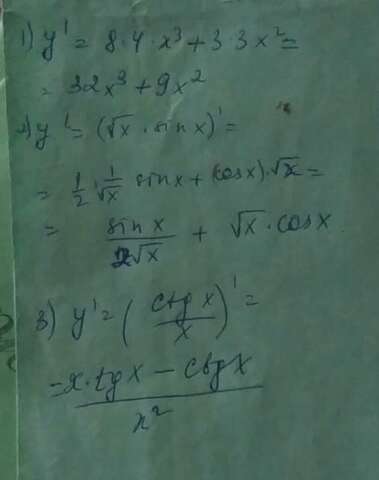 1) y' = 8·4·x³ + 3·3x² =
= 32x³ + 9x²
2) y' = (√x · sin x)' =
= 1/2 · 1/√x sin x + (cos x)·√x =
= sin x / 2√x + √x · cos x
3) y' = (ctg x / x)' =
= -x·tg x - ctg x / x²